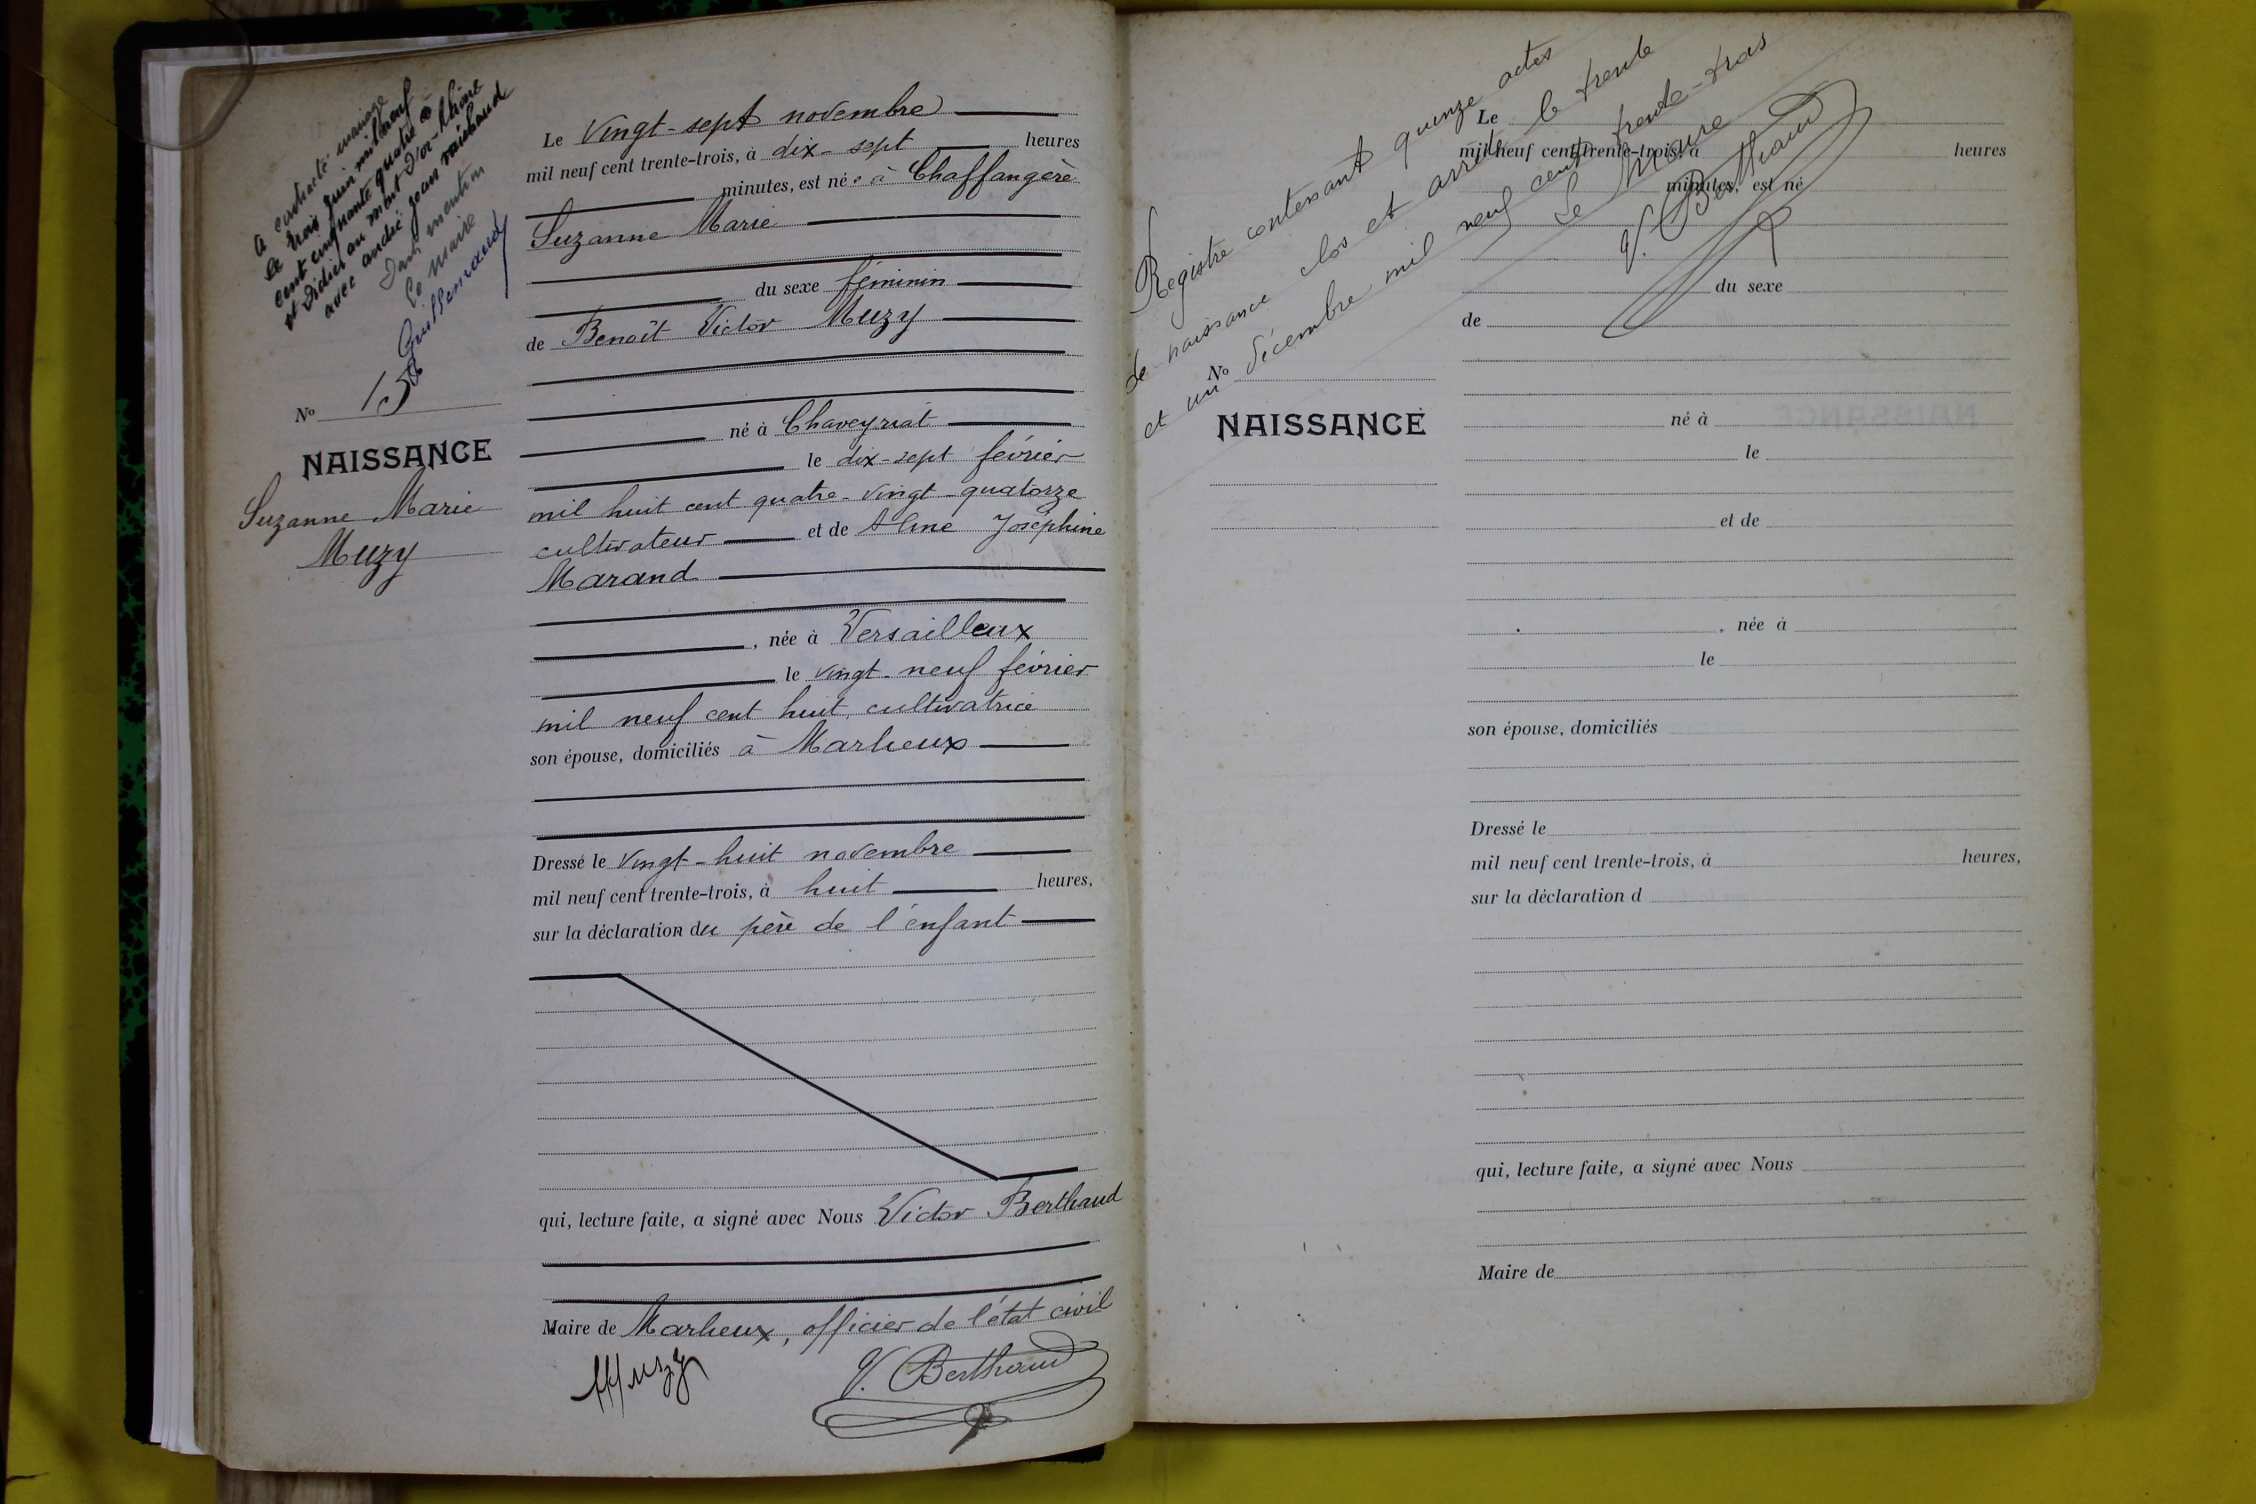 a contracté mariage
le trois juin mil neuf
cent cinquante quatre à
st Didier au mont d'or-Rhône
avec andré jean
Dont mention
Le Maire
No 15
NAISSANCE
Suzanne Marie
Muzy
Le Vingt-sept novembre
mil neuf cent trente-trois, à dix-sept heures
minutes, est née à Chaffangère
Suzanne Marie
du sexe féminin
de Benoît Victor Muzy
né à Chaveyriat
le dix-sept février
mil huit cent quatre-vingt-quatorze
cultivateur et de Aline Joséphine
Marand
, née à Versailleux
le vingt-neuf février
mil neuf cent huit, cultivatrice
son épouse, domiciliés à Marlieux
Dressé le vingt-huit novembre
mil neuf cent trente-trois, à huit heures,
sur la déclaration du père de l'enfant
qui, lecture faite, a signé avec Nous Victor Berthaud
Maire de Marlieux, officier de l'état civil
Muzy V. Berthaud
Registre contenant quinze actes
de naissance clos et arrêté le trente
et un décembre mil neuf cent trente-trois
Le Maire
V. Berthaud
Le
mil neuf cent trente-trois, à heures
minutes, est né
du sexe
de
No
NAISSANCE
né à
le
et de
, née à
le
son épouse, domiciliés
Dressé le
mil neuf cent trente-trois, à heures,
sur la déclaration d
qui, lecture faite, a signé avec Nous
Maire de